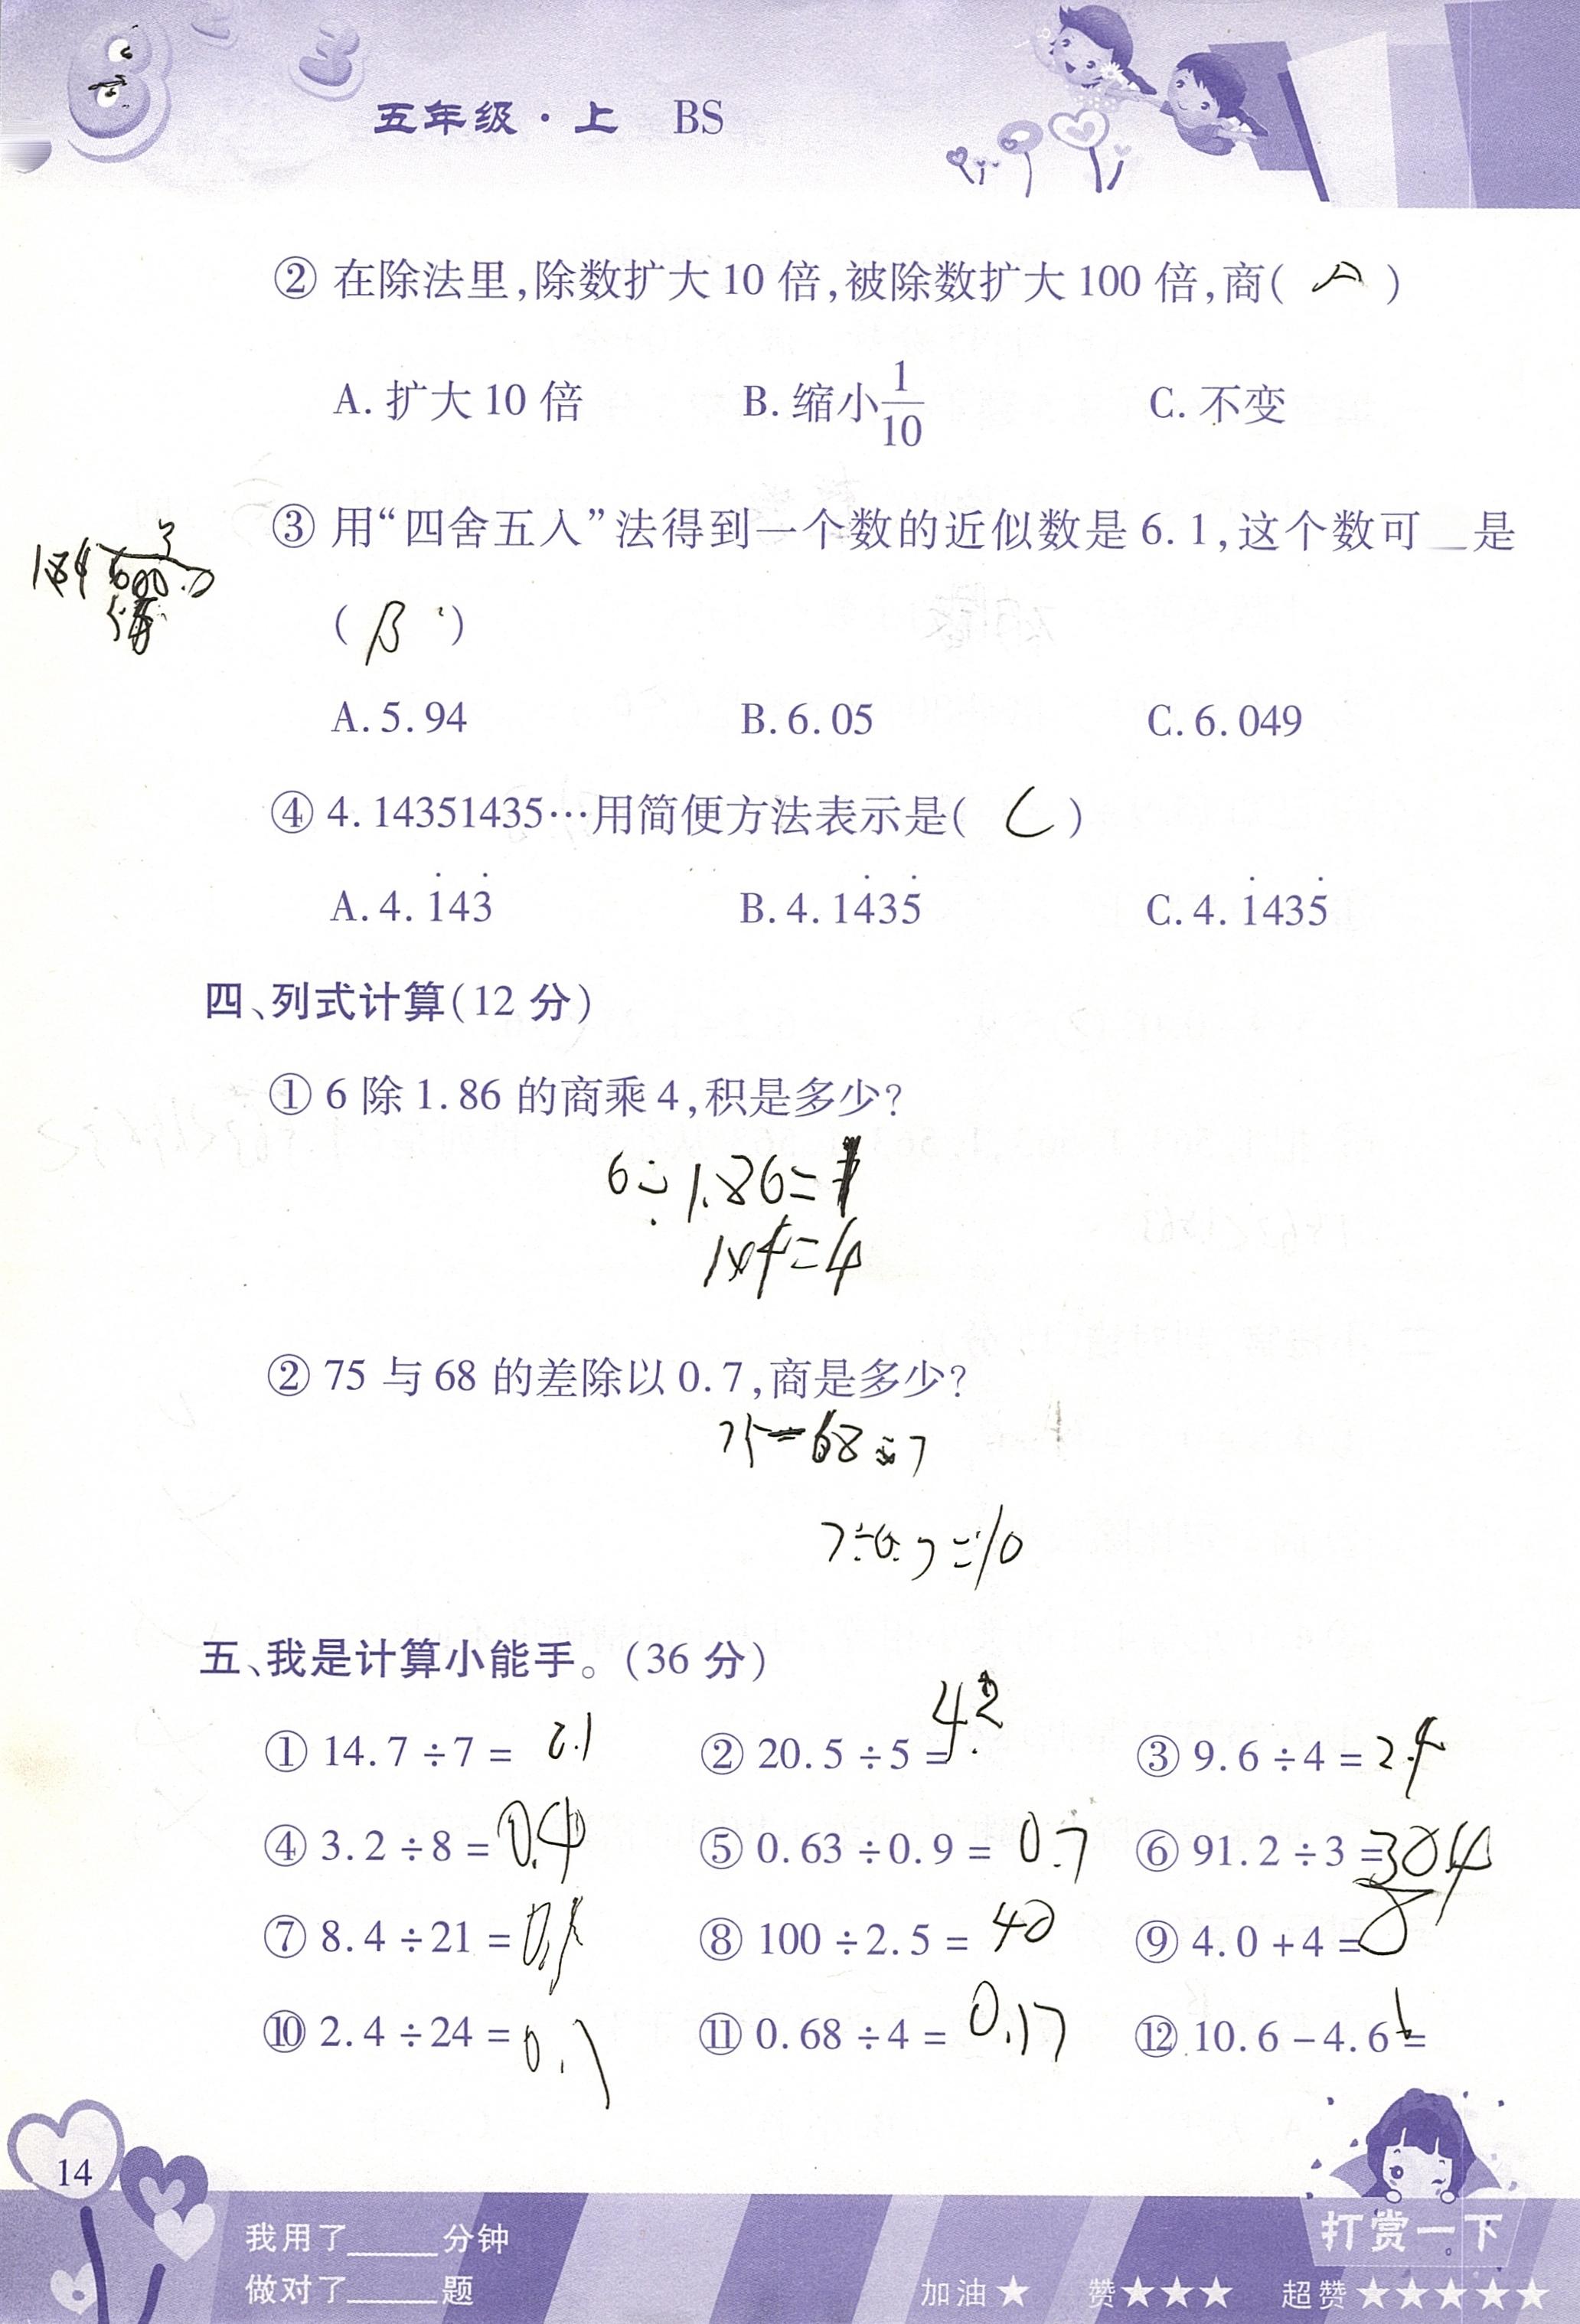 五年级·上 BS
② 在除法里,除数扩大 10 倍,被除数扩大 100 倍,商( A )
A. 扩大 10 倍 B. 缩小1/10 C. 不变
③ 用“四舍五入”法得到一个数的近似数是 6.1,这个数可 是
( B )
A. 5.94 B. 6.05 C. 6.049
④ 4.14351435…用简便方法表示是( C )
A. 4.1̇43̇ B. 4.14̇35̇ C. 4.1̇435̇
四、列式计算(12 分)
① 6 除 1.86 的商乘 4,积是多少?
6÷1.86=1
1×4=4
② 75 与 68 的差除以 0.7,商是多少?
75-68÷7
7÷0.7=10
五、我是计算小能手。(36 分)
① 14.7÷7= 2.1 ② 20.5÷5= 4.2 ③ 9.6÷4= 2.4
④ 3.2÷8= 0.4 ⑤ 0.63÷0.9= 0.7 ⑥ 91.2÷3= 304
⑦ 8.4÷21= ⑧ 100÷2.5= 40 ⑨ 4.0+4= 8
⑩ 2.4÷24= 0.1 ⑪ 0.68÷4= 0.17 ⑫ 10.6-4.6= 6
14
我用了____分钟
做对了____题
打赏一下。
加油★ 赞★★★ 超赞★★★★★